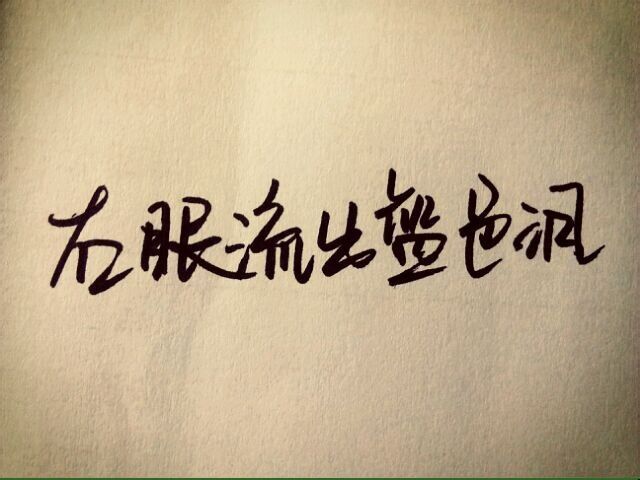 右眼流出蓝色泪